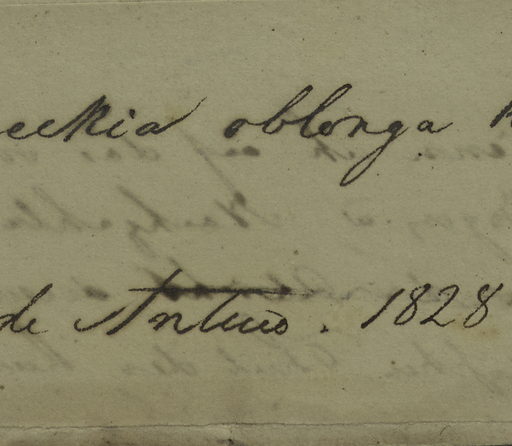 eckia oblonga
de Antuco. 1828